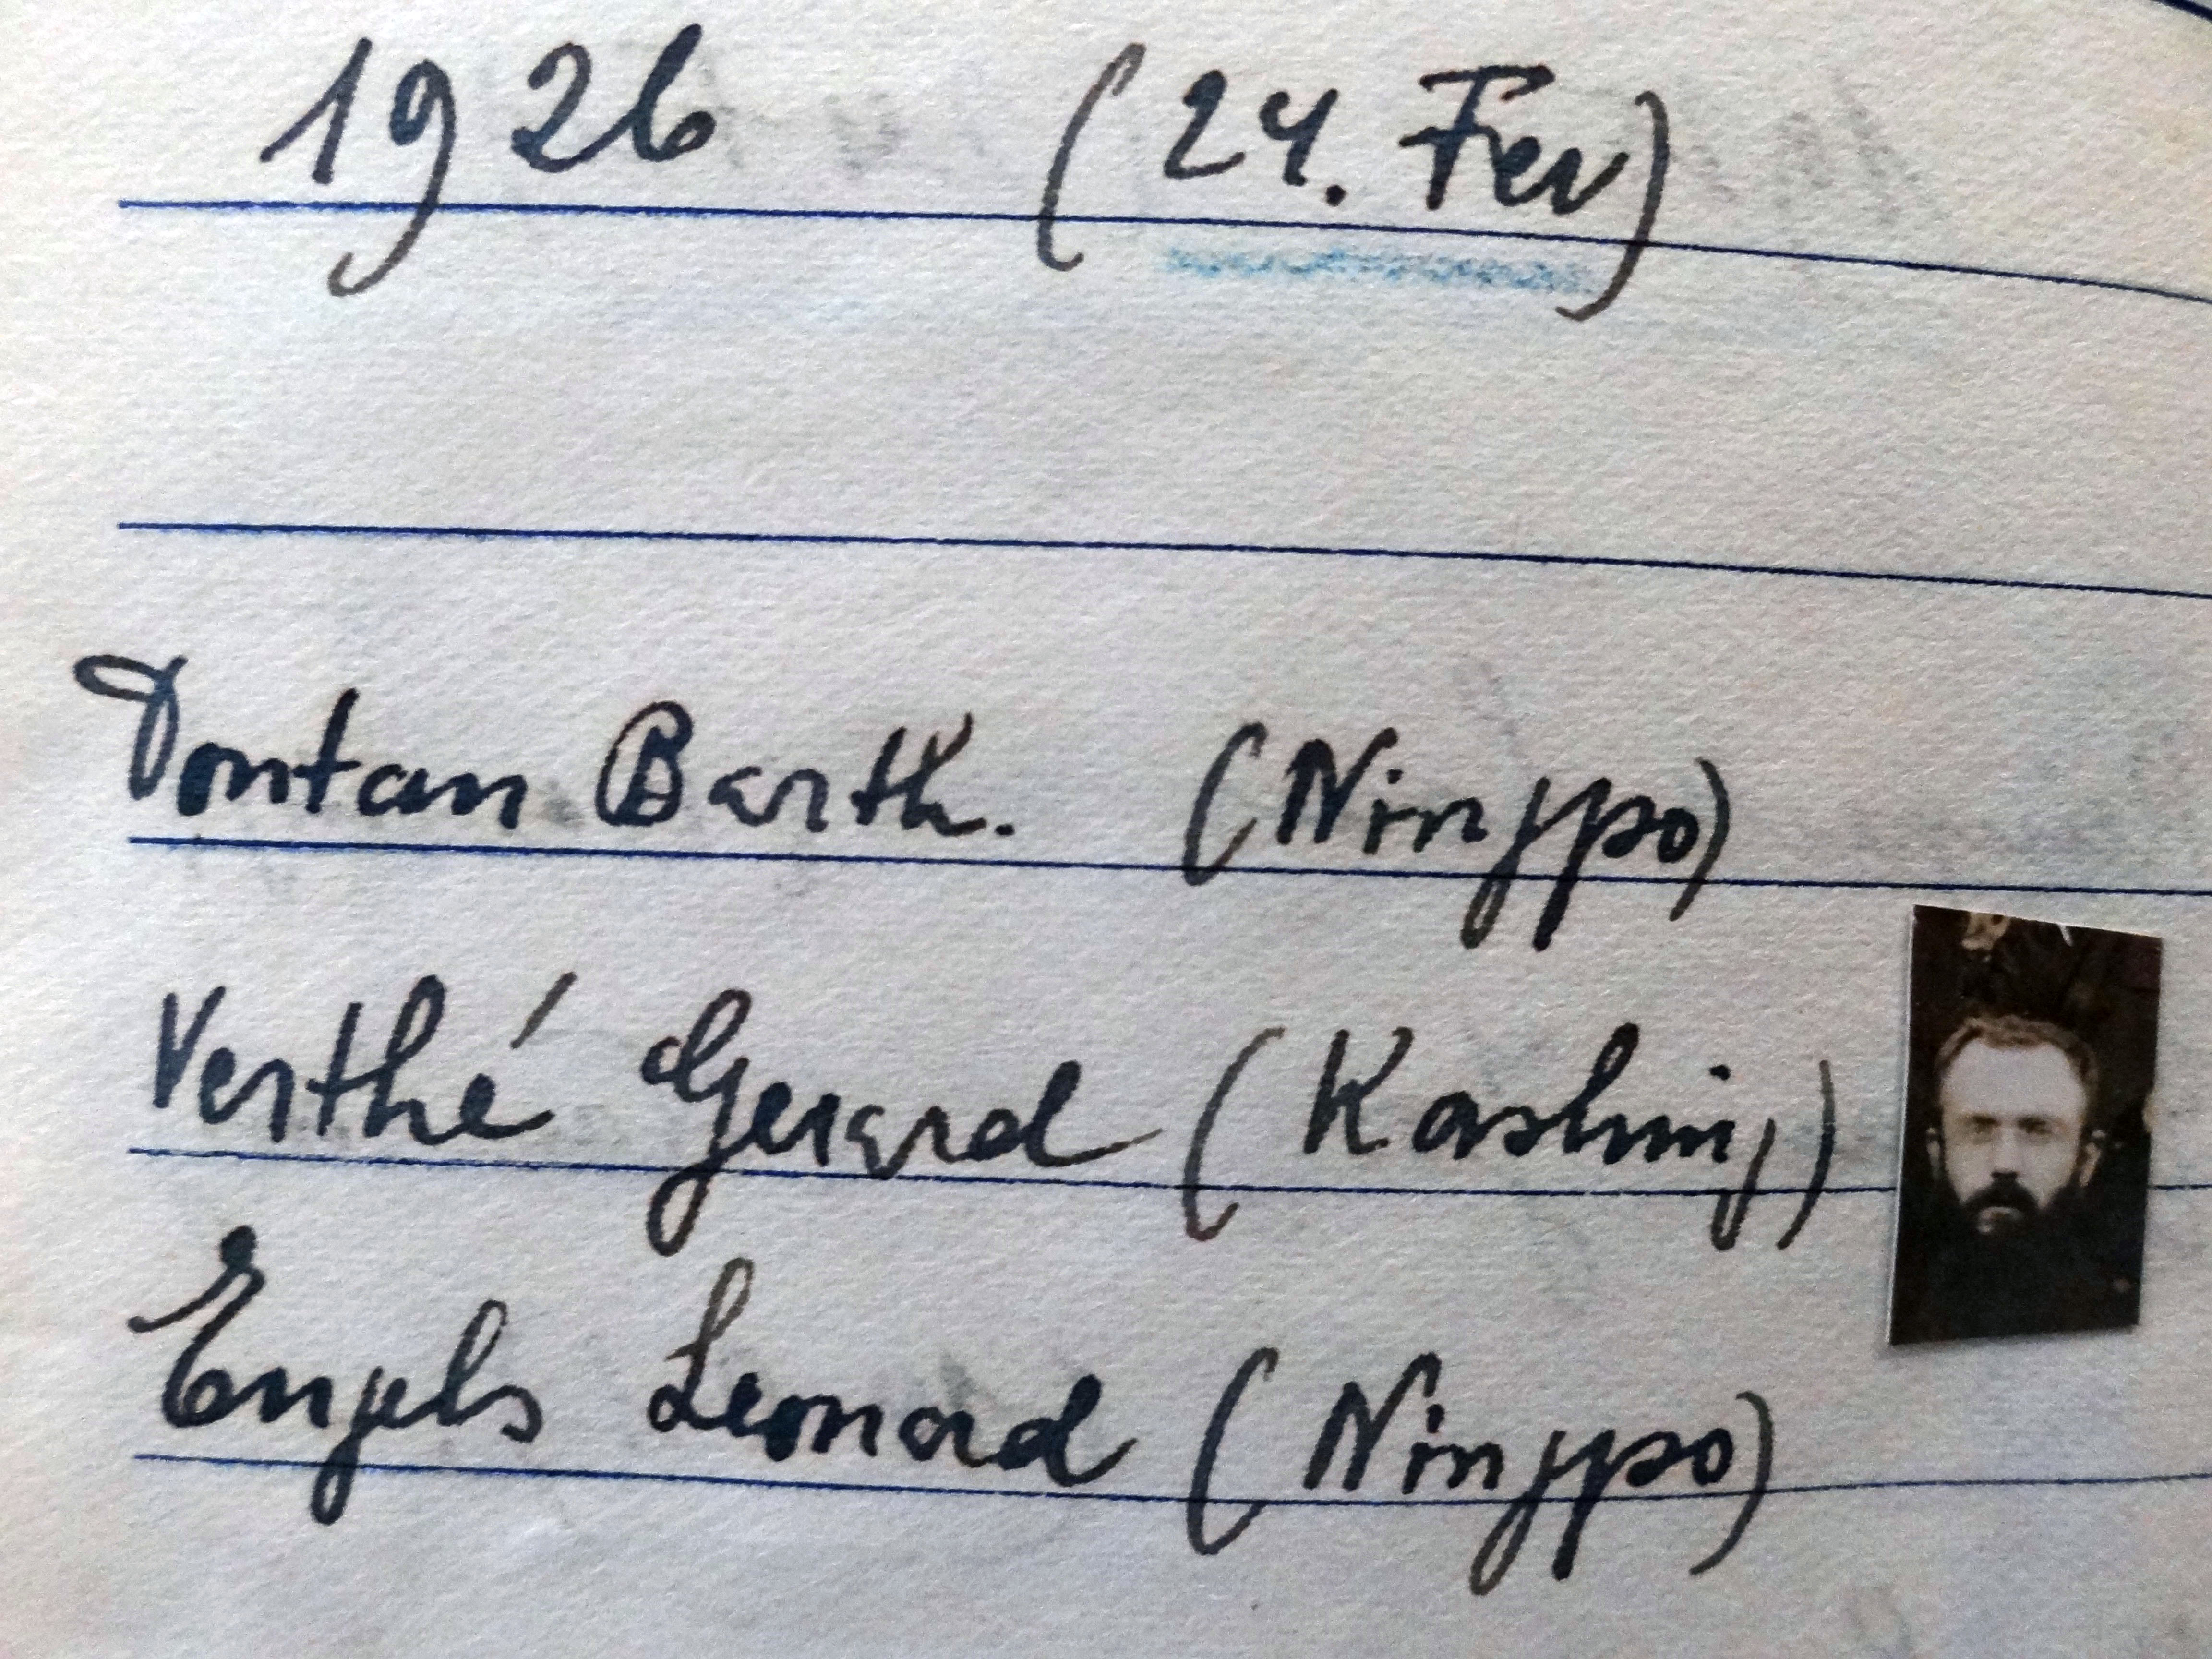 1926 (24. Fev)
Tontan Barth. (Ningpo)
Verthé Gerard (Kashing)
Engels Leonard (Ningpo)